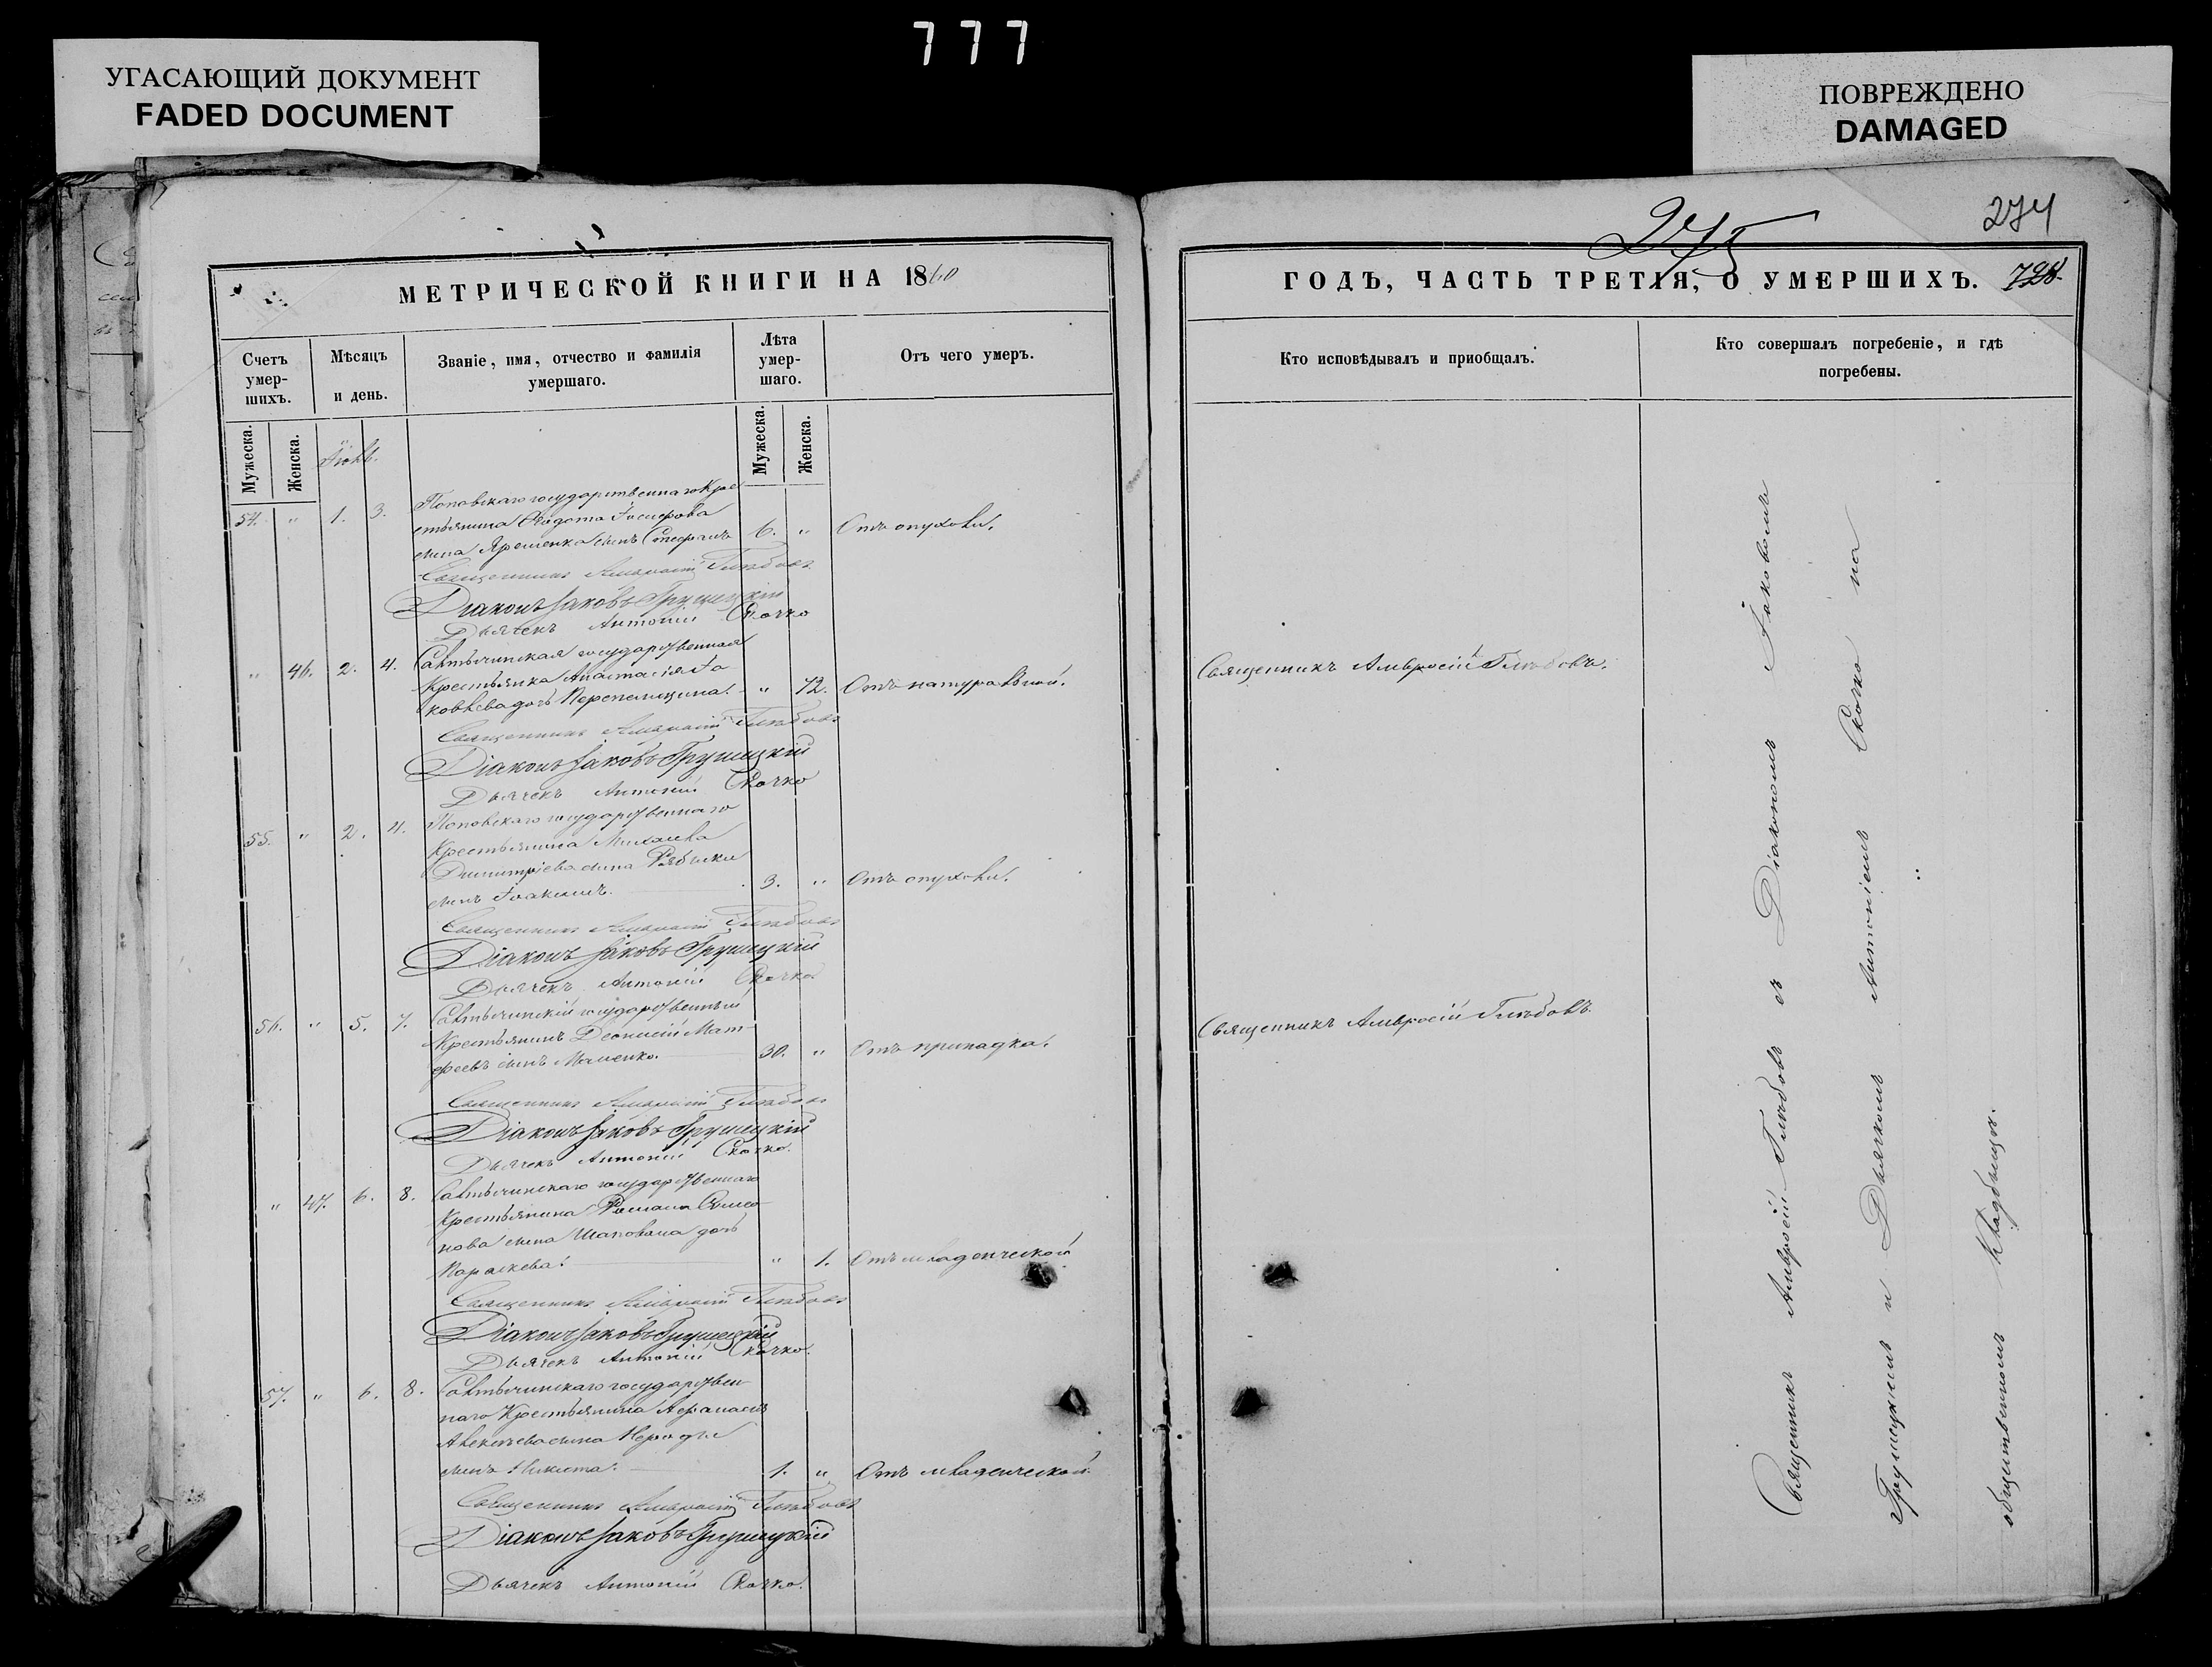 777
УГАСАЮЩИЙ ДОКУМЕНТ
FADED DOCUMENT
ПОВРЕЖДЕНО
DAMAGED
275
274
МЕТРИЧЕСКОЙ КНИГИ НА 1860
ГОДЪ, ЧАСТЬ ТРЕТІЯ, О УМЕРШИХЪ. 728.
Счетъ
умер-
шихъ.
Мѣсяцъ
и день.
Званіе, имя, отчество и фамилія
умершаго.
Лѣта
умер-
шаго.
Отъ чего умеръ.
Кто исповѣдывалъ и приобщалъ.
Кто совершалъ погребеніе, и гдѣ
погребены.
Мужеска.
Женска.
Мужеска.
Женска.
Іюль.
54. " 1. 3. Поповскаго государственнаго Кре
стьянина Ѳедота Іосифова
сына Ярошенка сынъ Стефанъ 6. " Отъ опухоли.
Священникъ Амвросій Глѣбовъ
Діаконъ Іаковъ Грушецкій
Дьячекъ Антоній Скочко
" 46. 2. 4. государственная
Крестьянка Анастасія Іа
ковлева дочь Перепелицина. " 72. Отъ натуральной. Священникъ Амвросій Глѣбовъ.
Священникъ Амвросій Глѣбовъ
Діаконъ Іаковъ Грушецкій
Дьячекъ Антоній Скочко
55. " 2. 4. Поповскаго государственнаго
Крестьянина Михаила
Димитріева сына
сынъ Іоакимъ. 3. " Отъ опухоли.
Священникъ Амвросій Глѣбовъ
Діаконъ Іаковъ Грушецкій
Дьячекъ Антоній Скочко
56. " 5. 7. государственный
Крестьянинъ Леонтій Мат-
феевъ сынъ 30. " Отъ припадка. Священникъ Амвросій Глѣбовъ.
Священникъ Амвросій Глѣбовъ
Діаконъ Іаковъ Грушецкій
Дьячекъ Антоній Скочко.
" 47. 6. 8. государственнаго
Крестьянина Романа Симо
нова сына Шаповала дочь
Параскева. " 1. Отъ младенческой
Священникъ Амвросій Глѣбовъ
Діаконъ Іаковъ Грушецкій
Дьячекъ Антоній Скочко.
57. " 6. 8. государствен
наго Крестьянина Афанасія
Алексѣева сына
сынъ Никита. 1. " Отъ младенческой.
Священникъ Амвросій Глѣбовъ
Діаконъ Іаковъ Грушецкій
Дьячекъ Антоній Скочко.
Священникъ Амвросій Глѣбовъ съ Діакономъ Іаковомъ
Грушецкимъ и Дьячкомъ Антоніемъ Скочко на
общественномъ кладбищѣ.